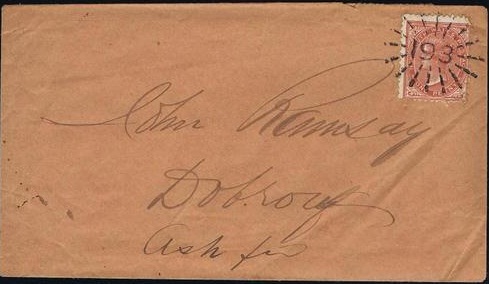 193
John Ramsay
Dobroyd
Ask for